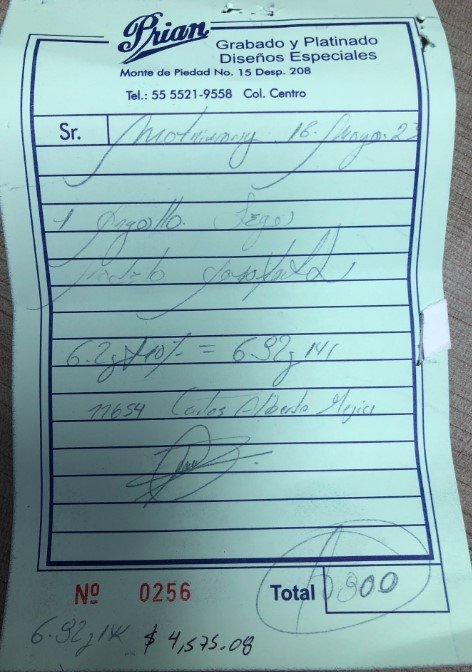 Prian
Grabado y Platinado
Diseños Especiales
Monte de Piedad No. 15 Desp. 208
Tel.: 55 5521-9558 Col. Centro
Sr. 16. Mayo. 23
1 Argolla
Modelo
6.2g+10% = 6.92g 14k
11654 Carlos Alberto Mejia
Nº 0256 Total 300
6.92g 14K $4,575.08